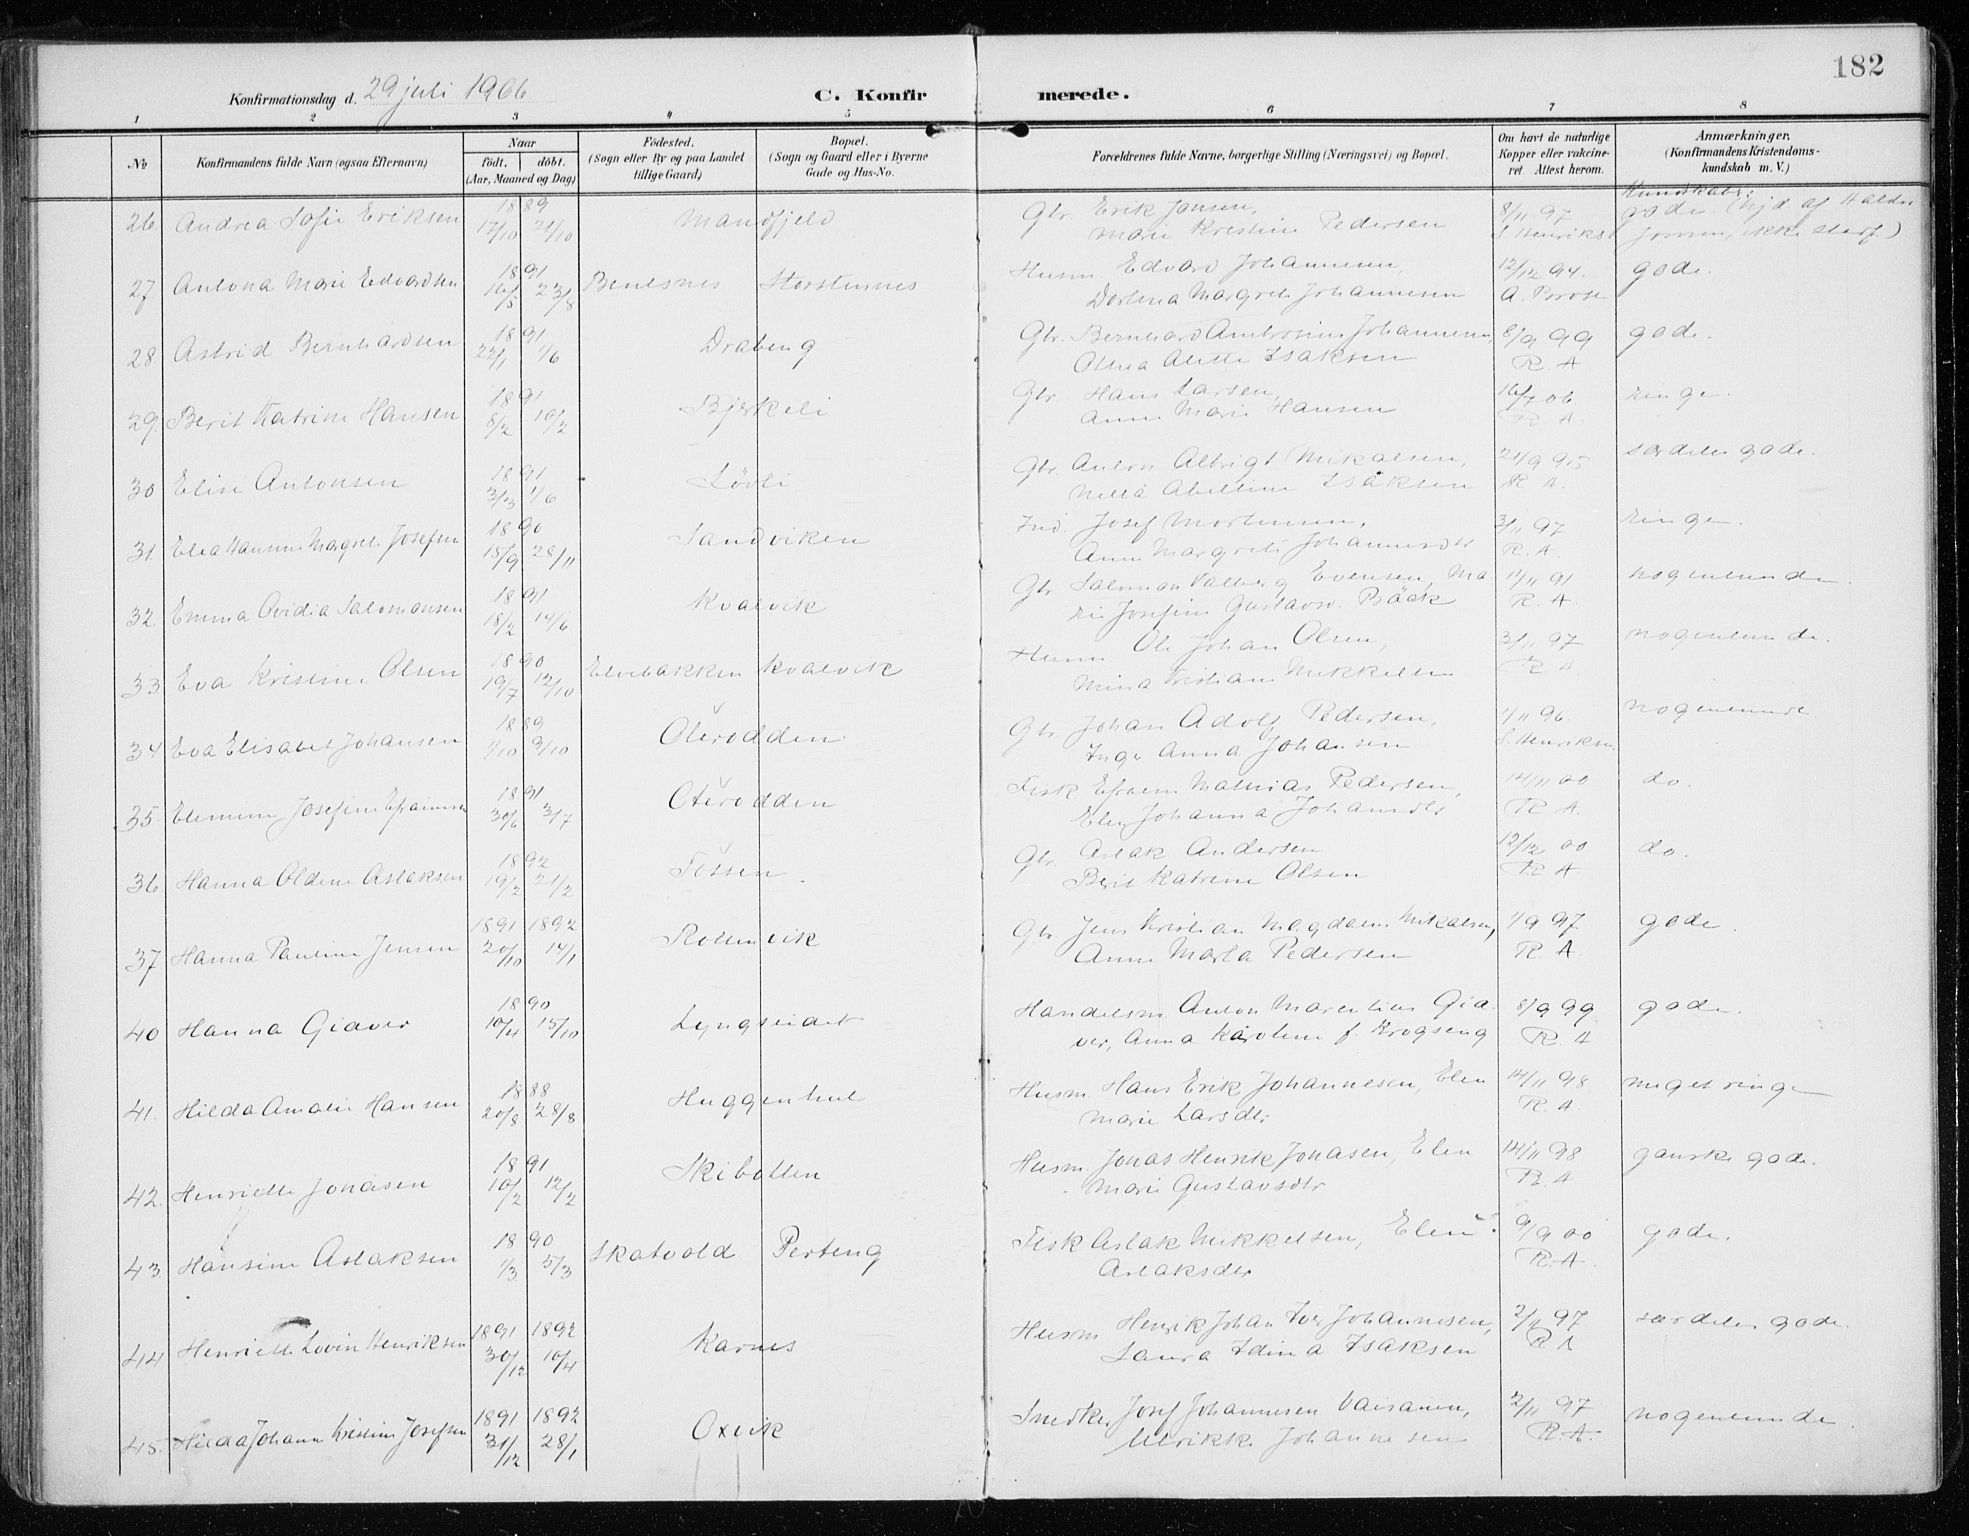 182
Konfirmationsdag d. 29 juli 1906
C. Konfirmerede.
1 2 3 4 5 6 7 8
No
Konfirmandens fulde Navn (ogsaa Efternavn)
Naar
født. døbt.
(Aar, Maaned og Dag)
Fødested.
(Sogn eller By og paa Landet
tillige Gaard)
Bopæl.
(Sogn og Gaard eller i Byerne
Gade og Hus-No.
Forældrenes fulde Navne, borgerlige Stilling (Næringsvei) og Bopæl.
Om havt de naturlige
Kopper eller vakcine-
ret. Attest herom.
Anmærkninger.
(Konfirmandens Kristendoms-
kundskab m. V.)
Kundskaber:
26. Andrea Sofie Eriksen 1889 17/10 21/10 Mandfjeld Gbr. Erik Jonsen, 8/11 97 gode.
Marie Kristine Pedersen S. Henriks
27 Antona Marie Edvardsen 1891 16/5 23/8 Benesnes Storstennes Husm. Edvard Johannesen, 12/12 94. gode.
Dorthea Margrete Johannesen
28 Astrid Bernhardsen 1891 22/1 1/6 Drabeng Gbr. Bernhard Ambrosius Johannesen 6/9 99 gode.
Olhea Alette Isaksen R. A
29. Berit Katrine Hansen 1891 8/2 10/2 Bjerkeli Gbr. Hans Larsen, 16/7 06 ringe.
Anne Marie Hansen R. A.
30 Elise Antonsen 1891 3/3 1/6 Løvli Gbr. Anton Albrigt Mikalsen, 21/9 95 særdeles gode.
Nella Abeline Isaksen R. A.
31. Elea Hansine Margrete Josefsen 1890 15/9 28/11 Sandviken Ind. Josef Mortensen, 3/11 97 ringe.
Anne Margrete Johannesdtr R. A.
32. Emma Ovidia Salomonsen 1891 18/2 14/6 Kvalvik Gbr Salomon Valberg Evensen, Ma- 11/11 91 nogenlunde.
rie Josefine Gustavsd. Bäck R. A.
33 Eva Kristine Olsen 1890 19/7 12/10 Elvebakken Kvalvik Husm Ole Johan Olsen, 3/11 97 nogenlunde.
Mina Kristiane Mikkelsen R. A
34 Eva Elisabet Johansen 1889 1/10 9/10 Oterodden Gbr. Johan Adolf Pedersen, 1/11 96. nogenlunde
Inger Anna Johansen S. Henriksen
35. Elenine Josefine Efraimsen 1891 30/6 3/7 Oterodden Fisk Efraim Mathias Pedersen, 14/11 00 do.
Elen Johanna Johansdtr R. A.
36 Hanna Oldine Aslaksen 1892 19/2 21/2 Fossen Gbr. Aslak Andersen 12/12 00 do.
Berit Katrine Olsen R A
37 Hanna Pauline Jensen 1891 20/10 1892 14/1 Rottenvik Gbr Jens Kristian Magdalus Mikalsen, 1/9 97 gode.
Anne Marta Pedersen R. A
40 Hanna Giæver 1890 10/4 15/10 Lyngseidet Handelsm Anton Marentius Giæ- 8/9 99 gode.
ver, Anna Karoline f. Krogseng R. A
41. Hilda Amalie Hansen 1888 20/8 28/8 Huggenhul Husm. Hans Erik Johannesen, Elen 14/11 98 meget ringe
Marie Larsdtr R. A
42. Henriette Jonasen 1891 10/2 12/2 Skibotten Husm. Jonas Henrik Jonasen, Elen 14/11 98 ganske gode.
Marie Gustavsdtr R. A
43. Hansine Aslaksen 1890 1/3 5/3 Skatvold Perteng Fisk Aslak Mikkelsen, Elen 9/9 00 gode.
Aslaksdtr R. A.
44 Henriette Lovin Henriksen 1891 30/12 1892 10/4 Karnes Husm Henrik Johan Iver Johannesen, 2/11 97 særdeles gode.
Laura Edina Isaksen R A
45. Hilda Johanne Kristine Josefsen 1891 31/12 1892 28/1 Oxvik Snedker Josef Johannesen Vaisanen, 2/11 97 nogenlunde.
Ulrikke Johannesen R. A.